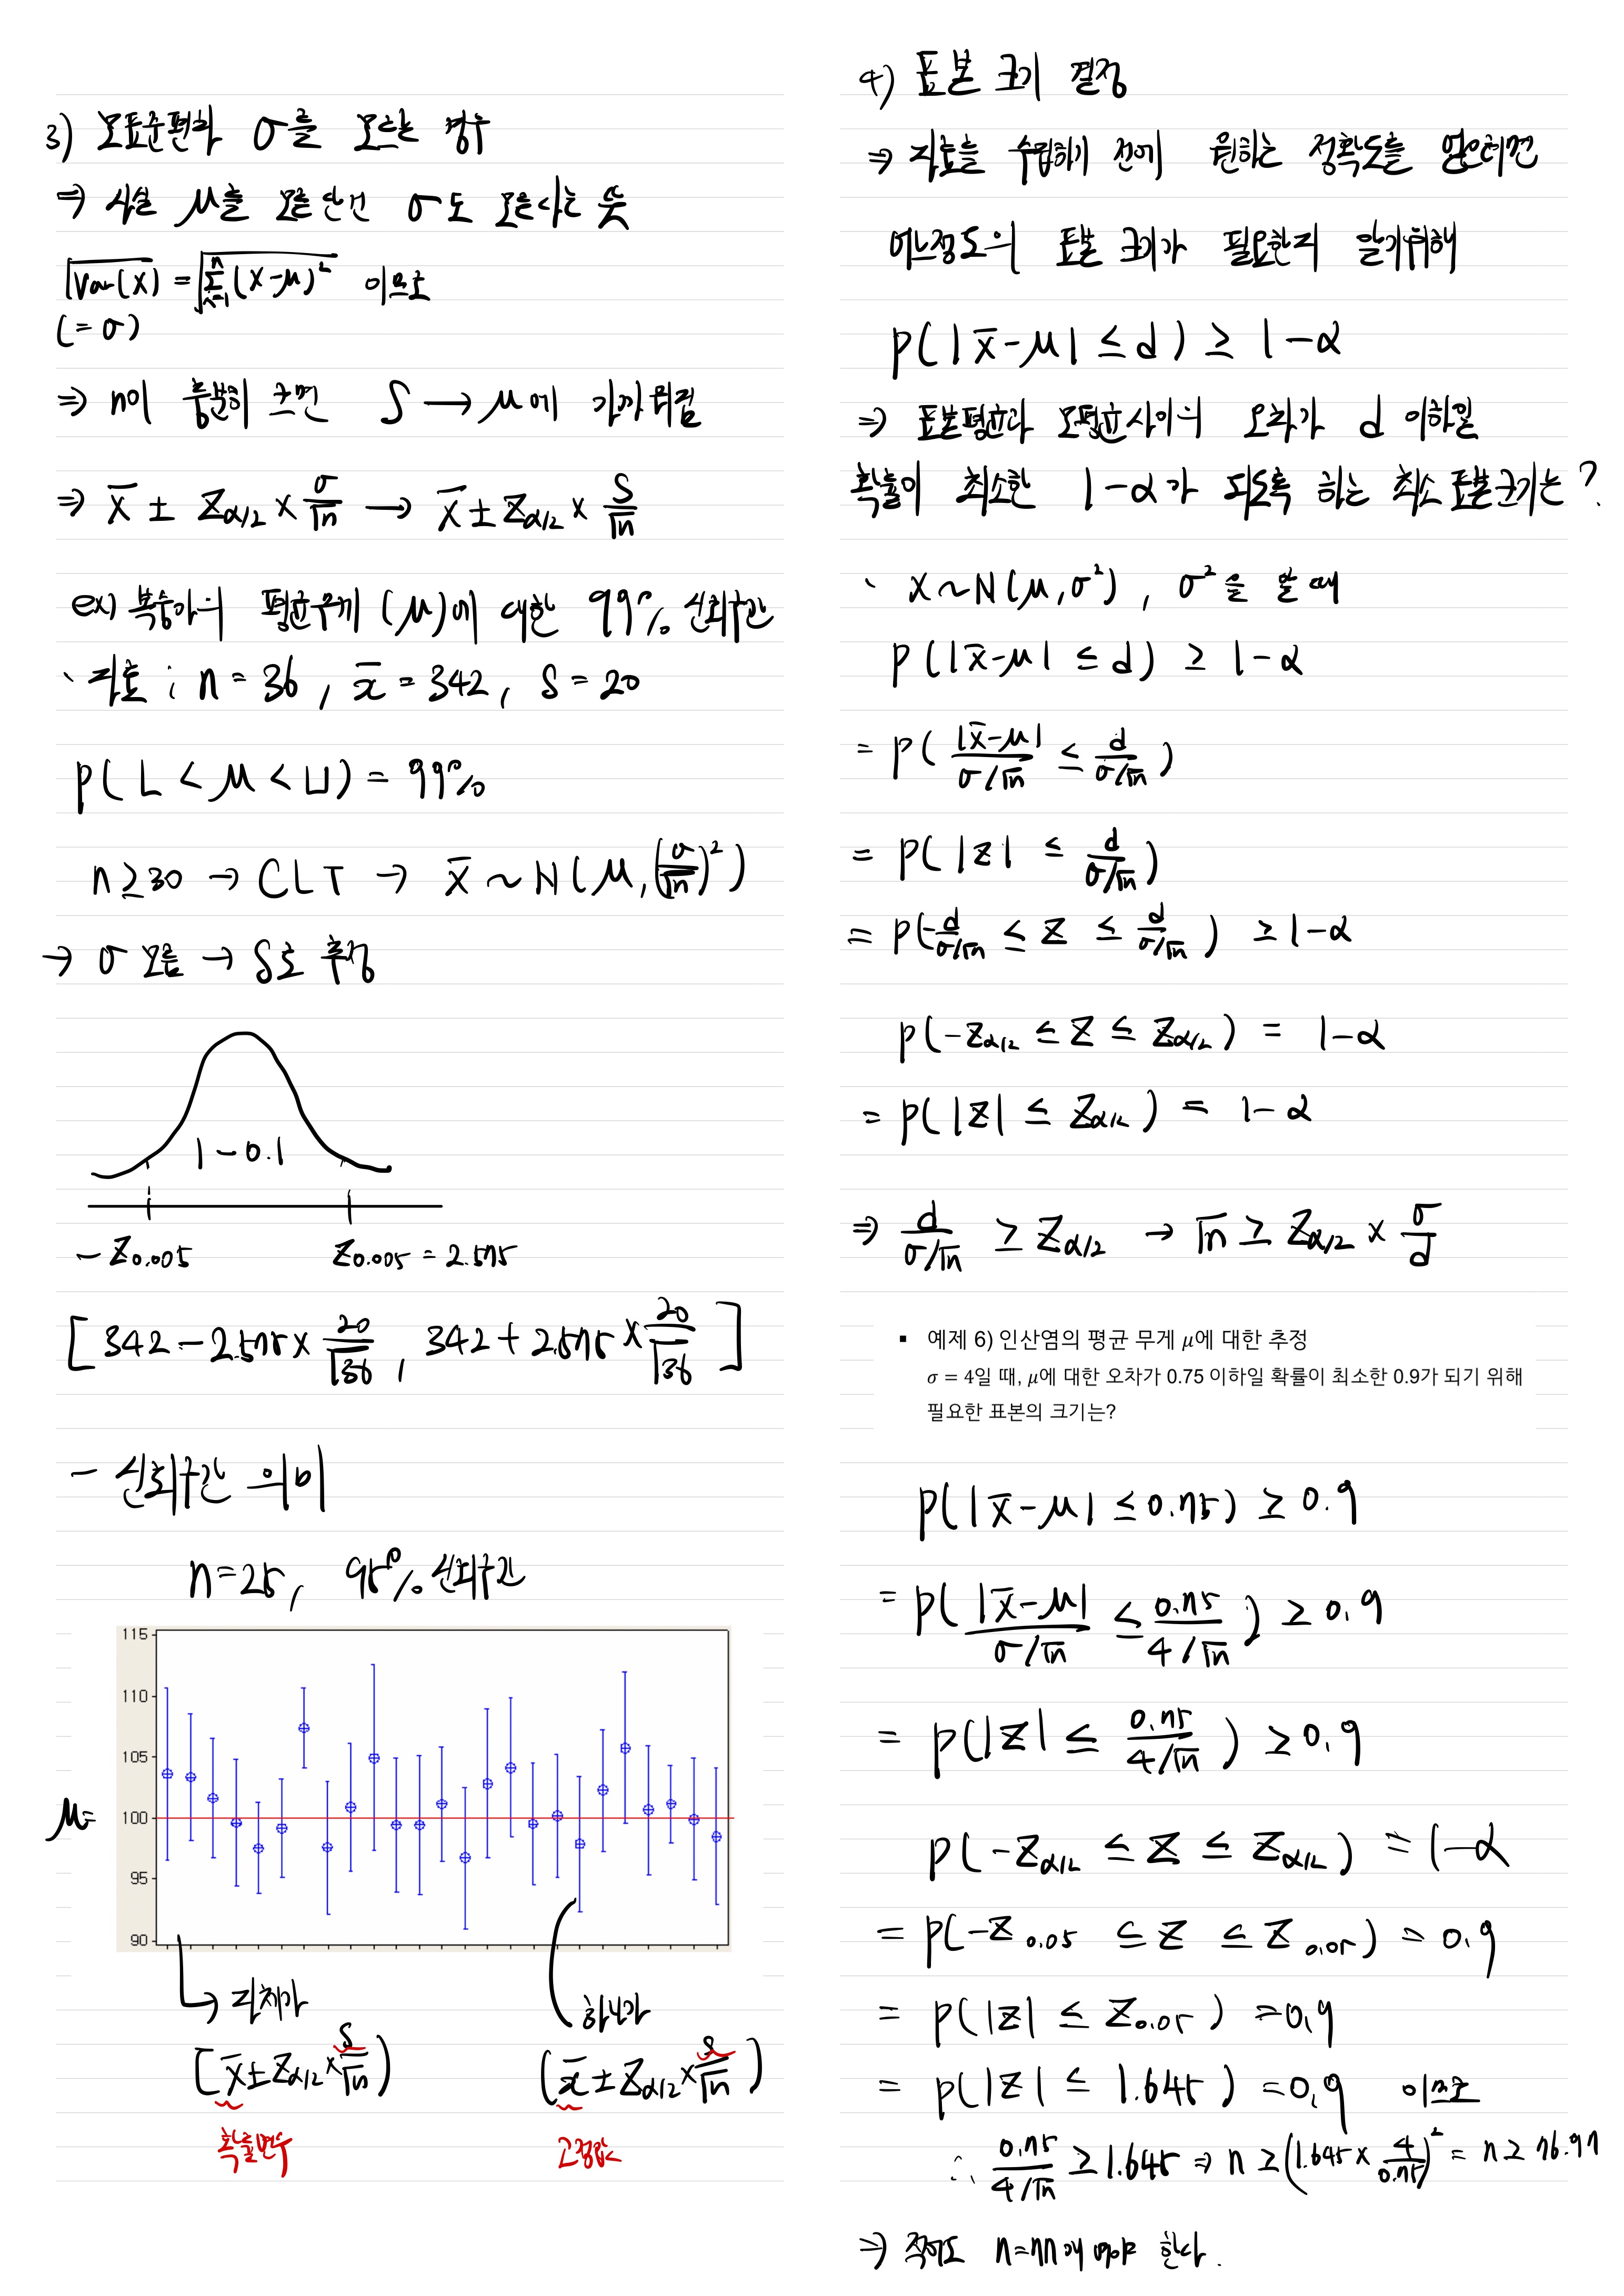 3) 모표준편차 σ를 모르는 경우
⇒ 사실 μ를 모른단건 σ도 모른다는 뜻
√Var(X) = √∑ⁿᵢ₌₁(X-μ)² 이므로
(= σ)
⇒ n이 충분히 크면 S → μ에 가까워짐
⇒ X̄ ± Z_{α/2} × σ/√n → X̄ ± Z_{α/2} × S/√n
ex) 복숭아의 평균무게 (μ)에 대한 99% 신뢰구간
· 자료 ; n = 36, x̄ = 342, S = 20
P( L < μ < U ) = 99%
n ≥ 30 → CLT → X̄ ~ N(μ, (σ/√n)²)
→ σ 모름 → S로 추정
1 - 0.1
- Z0.005 Z0.005 = 2.575
[ 342 - 2.575 × 20/√36 , 342 + 2.575 × 20/√36 ]
- 신뢰구간 의미
n = 25, 95% 신뢰구간
115
110
105
μ= 100
95
90
→ 자체가
하나가
[X̄ ± Z_{α/2} × S/√n)
(x̄ ± Z_{α/2} × s/√n)
확률변수
고정값
4) 표본 크기 결정
⇒ 자료를 수립하기 전에 원하는 정확도를 얻으려면
어느정도의 표본 크기가 필요한지 알기위해
P( |X̄ - μ| ≤ d ) ≥ 1 - α
⇒ 표본평균과 모평균사이의 오차가 d 이하일
확률이 최소한 1-α가 되도록 하는 최소 표본크기는?
· X ~ N(μ, σ²) , σ²을 알 때
P( |X̄ - μ| ≤ d ) ≥ 1 - α
= P( |X̄ - μ|/(σ/√n) ≤ d/(σ/√n) )
= P( |Z| ≤ d/(σ/√n) )
= P( -d/(σ/√n) ≤ Z ≤ d/(σ/√n) ) ≥ 1 - α
P( -Z_{α/2} ≤ Z ≤ Z_{α/2} ) = 1 - α
= P( |Z| ≤ Z_{α/2} ) = 1 - α
⇒ d/(σ/√n) ≥ Z_{α/2} → √n ≥ Z_{α/2} × σ/d
▪ 예제 6) 인산염의 평균 무게 μ에 대한 추정
σ = 4일 때, μ에 대한 오차가 0.75 이하일 확률이 최소한 0.9가 되기 위해
필요한 표본의 크기는?
P( |X̄ - μ| ≤ 0.75 ) ≥ 0.9
= P( |X̄ - μ|/(σ/√n) ≤ 0.75/(4/√n) ) ≥ 0.9
= P( |Z| ≤ 0.75/(4/√n) ) ≥ 0.9
P( -Z_{α/2} ≤ Z ≤ Z_{α/2} ) = 1 - α
= P( -Z0.05 ≤ Z ≤ Z0.05 ) = 0.9
= P( |Z| ≤ Z0.05 ) = 0.9
= P( |Z| ≤ 1.645 ) = 0.9 이므로
∴ 0.75/(4/√n) ≥ 1.645 ⇒ n ≥ (1.645 × 4/0.75)² = n ≥ 76.97
⇒ 적어도 n=77이어야 한다.